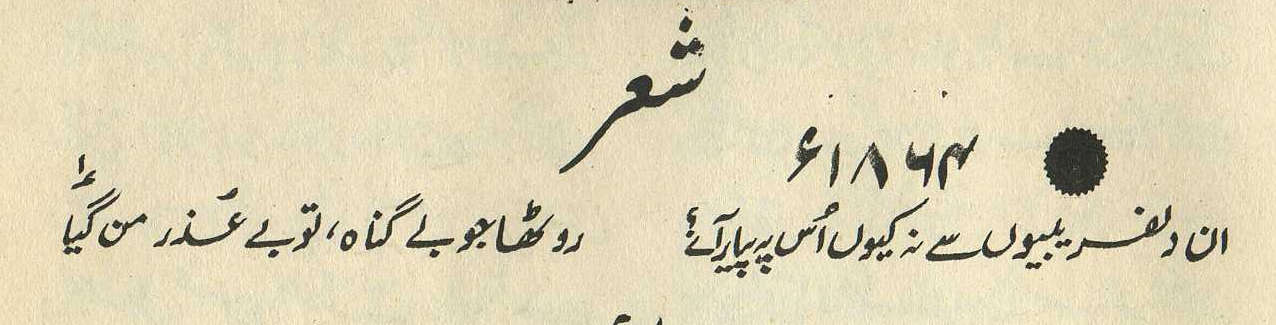 شعر
۱۸۶۴ء
ان دلفریبیوں سے نہ کیوں اُس پہ پیار آئے؟ روٹھا جو بے گناہ، تو بے عُذر من گیا ؂۱